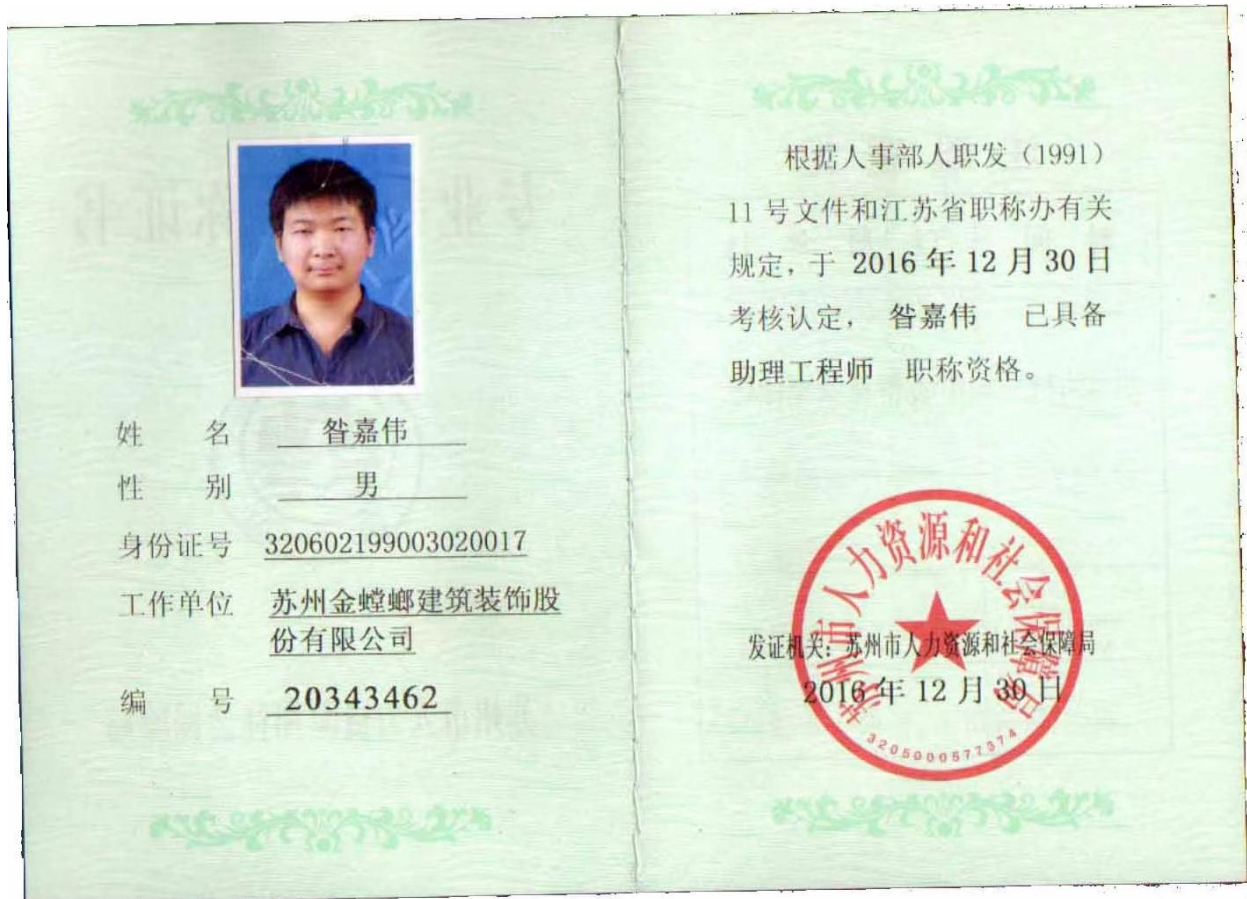 姓 名 昝嘉伟
性 别 男
身份证号 320602199003020017
工作单位 苏州金螳螂建筑装饰股
份有限公司
编 号 20343462
根据人事部人职发（1991）
11 号文件和江苏省职称办有关
规定，于 2016 年 12 月 30 日
考核认定， 昝嘉伟 已具备
助理工程师 职称资格。
苏州市人力资源和社会保障局
发证机关：苏州市人力资源和社会保障局
2016 年 12 月 30 日
3205000577374